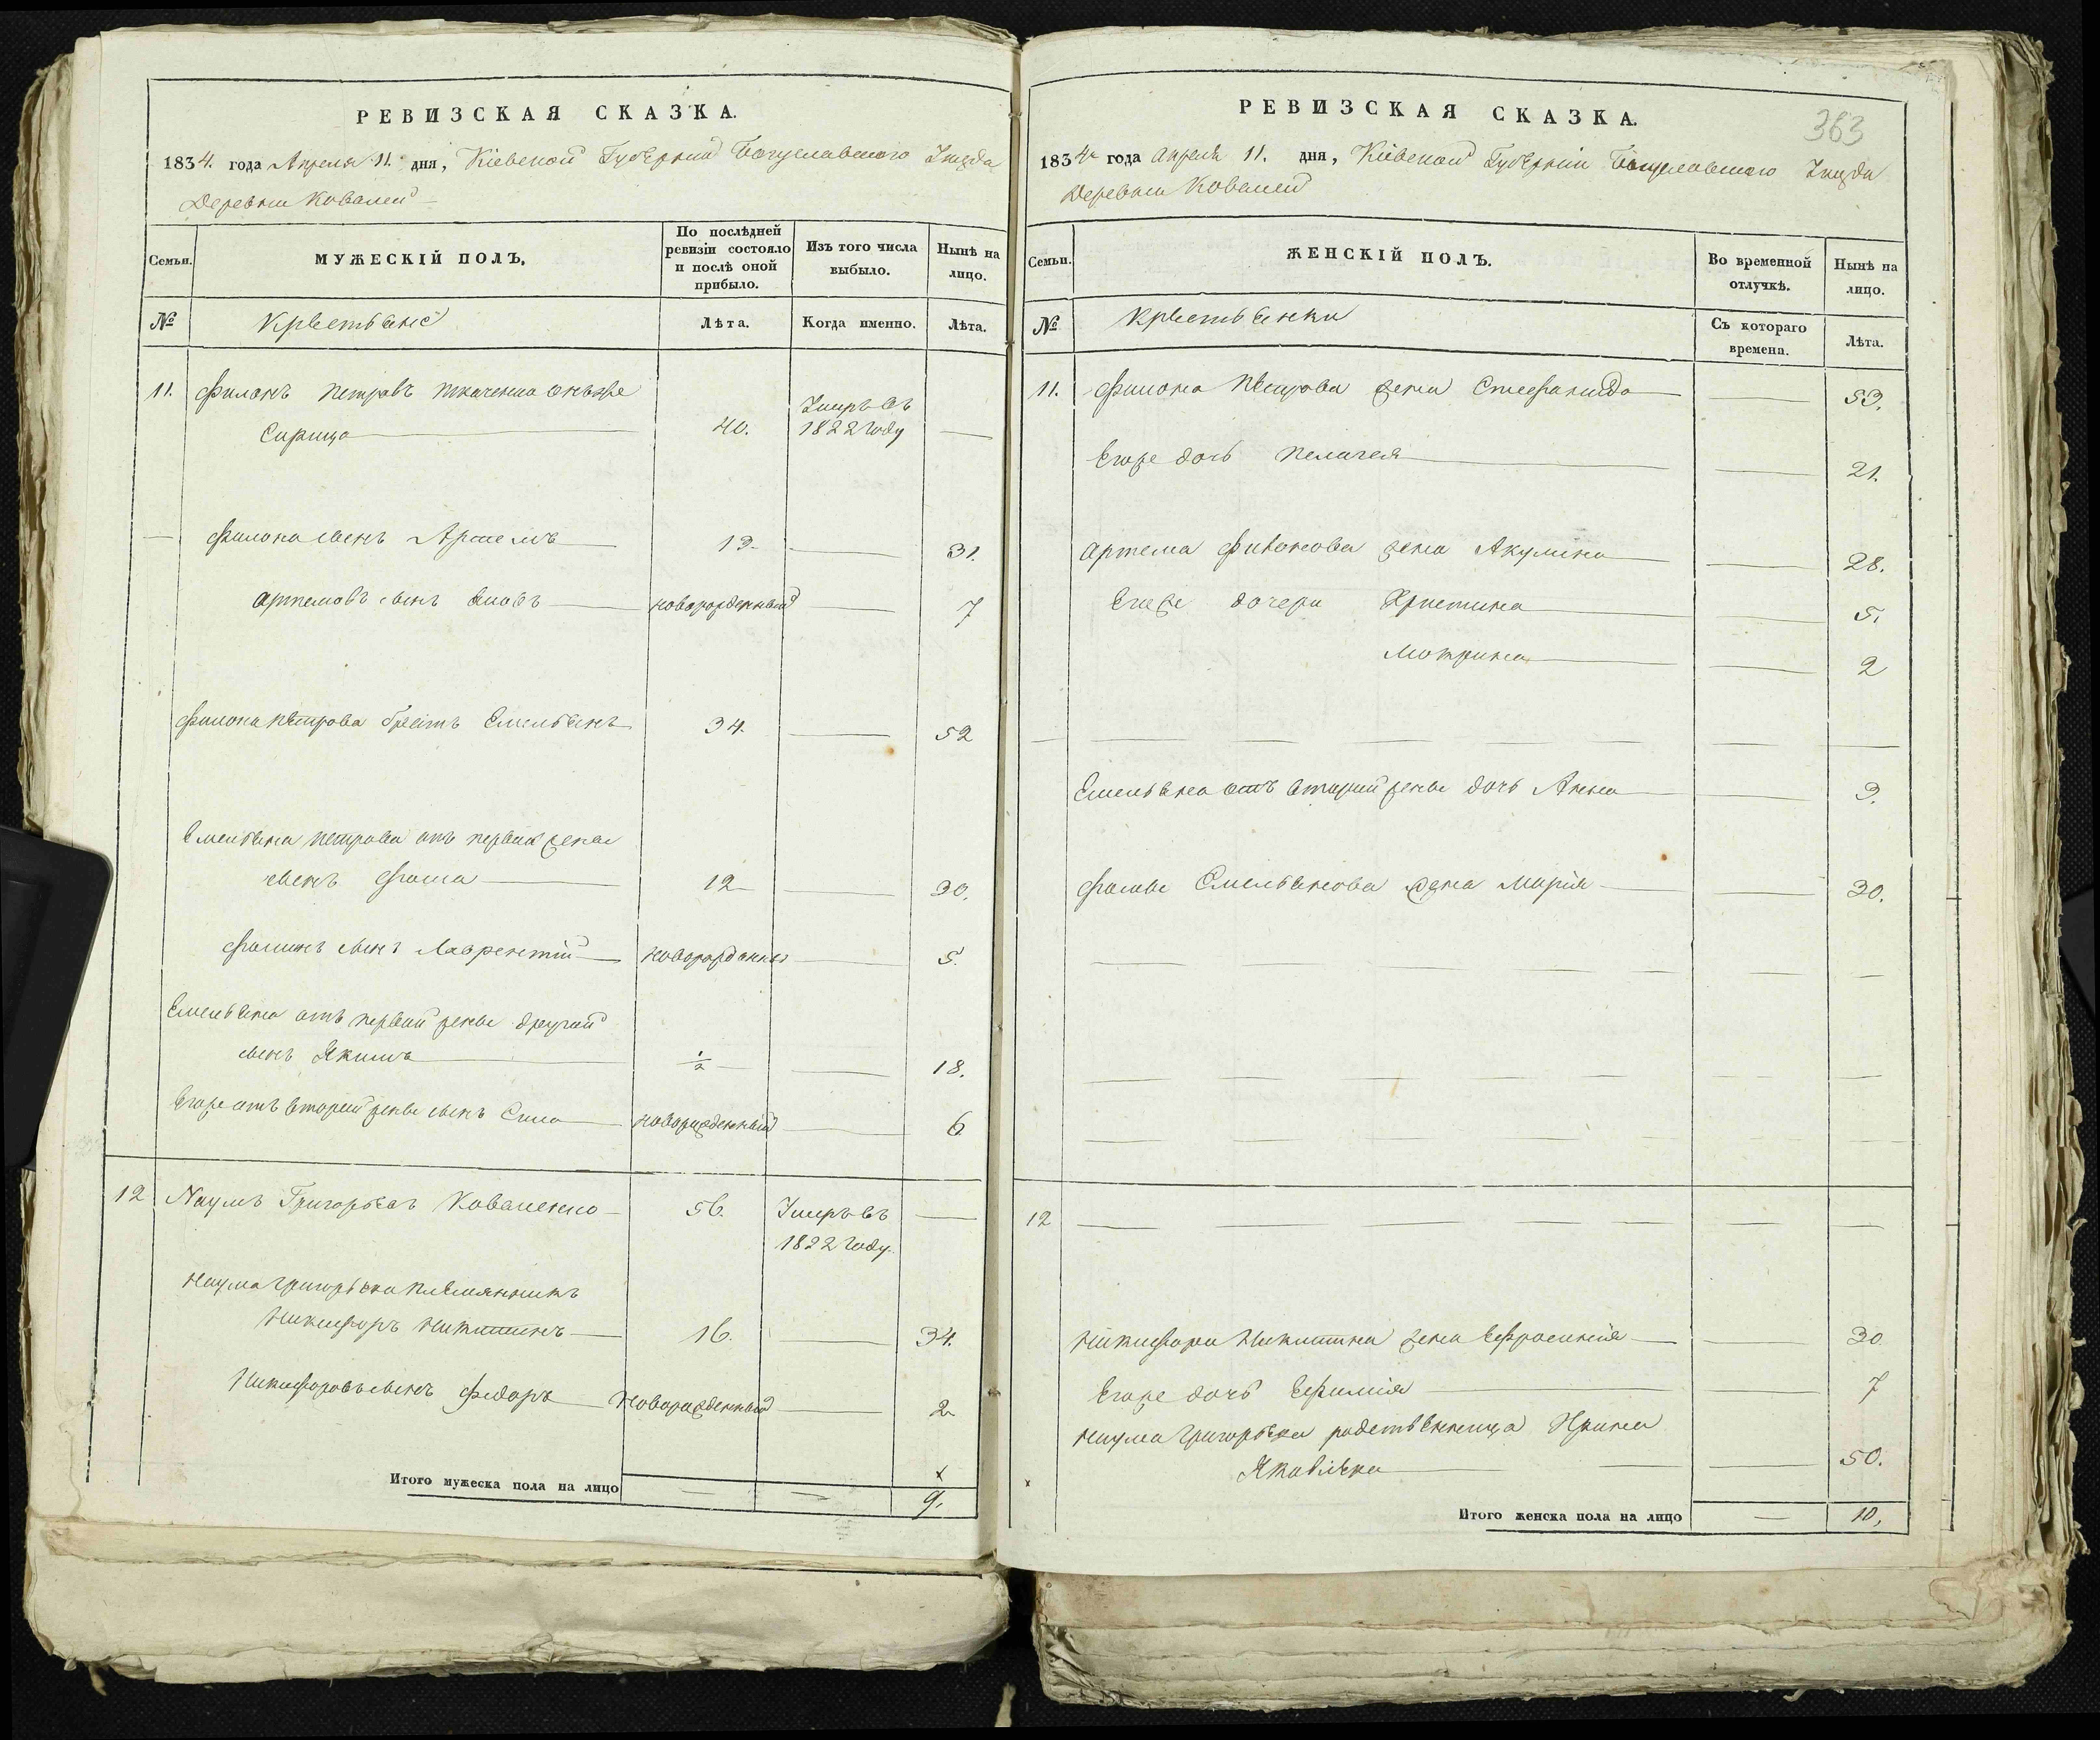 РЕВИЗСКАЯ СКАЗКА.
1834. года Апреля 11. дня, Кіевской Губерніи Богуславского Уезда
Деревни Ковалей
Семьи.
МУЖЕСКІЙ ПОЛЪ.
По послѣдней ревизіи состояло и послѣ оной прибыло.
Изъ того числа выбыло.
Нынѣ на лицо.
№
Крестьяне
Лѣта.
Когда именно.
Лѣта.
11. Филонъ Петровъ Ткаченко онъже
Сирица 40. Умръ въ 1822 году —
— Филона сынъ Артемъ 13 — 31.
Артемовъ сынъ Яковъ новорожденный — 7
Филона Петрова братъ Емельянъ 34. — 52
Емельяна Петрова отъ первой жены
сынъ Фома 12 — 30.
Фоминъ сынъ Лаврентий новорожденный — 5.
Емельяна отъ первой жены другой
сынъ Якимъ ½ — 18.
Егоже отъ второй жены сынъ Сила новорожденный — 6
12 Наумъ Григорьевъ Коваленко 56. Умръ въ —
1822 году.
Наума Григорьева племянникъ
Никифоръ Никитинъ 16. — 34.
Никифоровъ сынъ Федоръ Новорожденный — 2
Итого мужеска пола на лицо — — 9.
РЕВИЗСКАЯ СКАЗКА.
363
1834 года Апреля 11. дня, Кіевской Губерніи Богуславского Уезда
Деревни Ковалей
Семьи.
ЖЕНСКІЙ ПОЛЪ.
Во временной отлучкѣ.
Нынѣ на лицо.
№
Крестьянки
Съ котораго времени.
Лѣта.
11. Филона Петрова жена Стефанида — 53.
Егоже дочь Пелагея — 21.
Артема Филонова жена Акулина — 28.
Егоже дочери Христина — 5.
Мотрина — 2
Емельяна отъ второй жены дочь Анна — 9.
Фомы Емельянова жена Марія — 30.
12
Никифора Никитина жена Ефросинія — 30
Егоже дочь Ефимія — 7
Наума Григорьева родственница Ирина
Яковлева — 50.
Итого женска пола на лицо — 10.